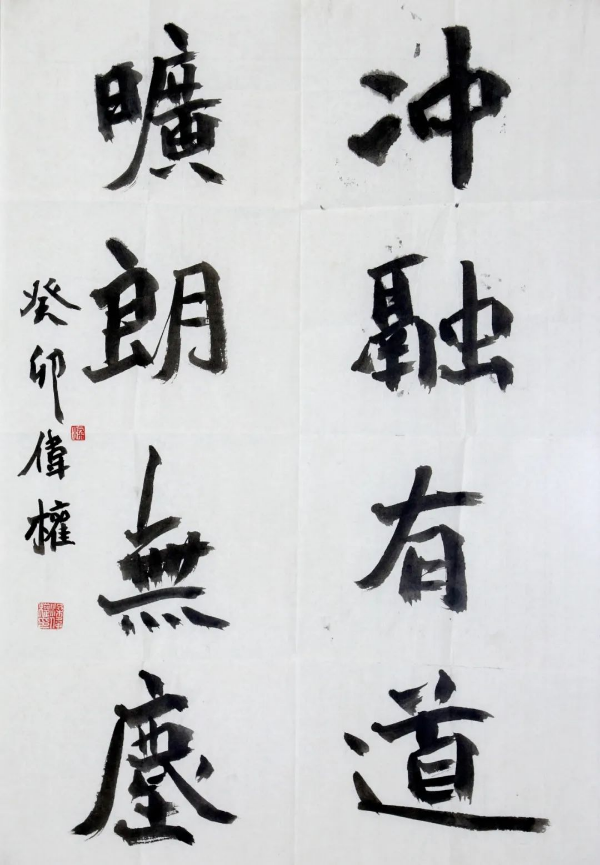 冲融有道
曠朗無塵
癸卯偉權